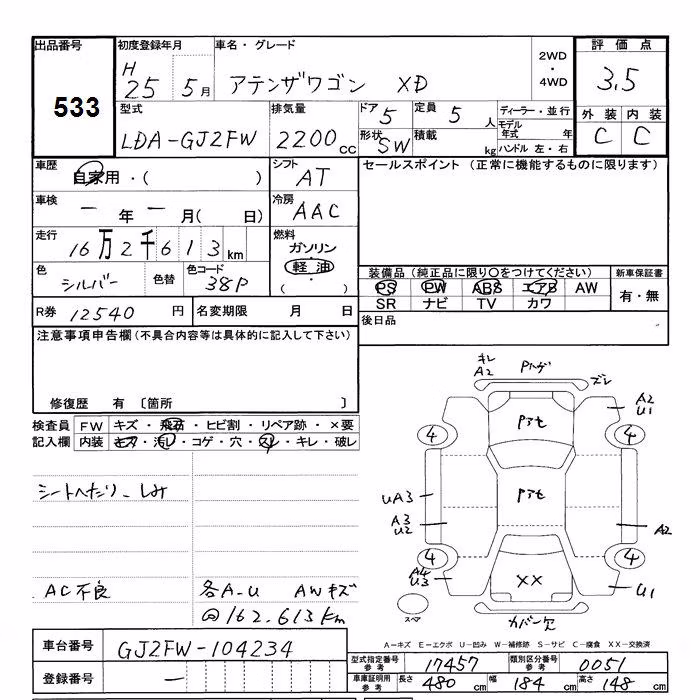 出品番号 初度登録年月 車名・グレード 2WD・4WD 評価点
533 H25 5月 アテンザワゴン XD 3.5
型式 排気量 ドア 5 定員 5人 ディーラー・並行 外装 内装
LDA-GJ2FW 2200cc 形状 SW 積載 kg モデル年式 年 C C
ハンドル 左・右
車歴 自家用・( ) シフト AT セールスポイント (正常に機能するものに限ります)
車検 ー年ー月( 日) 冷房 AAC
走行 16万2千613km 燃料 ガソリン・軽油・( )
色 シルバー 色替 色コード 38P 装備品 (純正品に限り〇をつけてください) 新車保証書
PS PW ABS エアB AW 有・無
SR ナビ TV カワ
R券 12540円 名変期限 月 日 後日品
注意事項申告欄 (不具合内容等は具体的に記入して下さい)
修復歴 有 〔箇所 〕
検査員 FW キズ・飛石・ヒビ割・リペア跡・×要
記入欄 内装 キズ・汚レ・コゲ・穴・スレ・キレ・破レ
シートへたり、しみ
AC不良 各A-U AWキズ
@162.613km
キレ
A2
Pハゲ
ズレ
A2
U1
Pアセ
4 4
Pアセ
UA3
A3
U2
A2
4 4
A4
U3
XX
U1
スペア
カバー欠
A-キズ E-エクボ U-凹み W-補修跡 S-サビ C-腐食 XX-交換済
車台番号 GJ2FW-104234
型式指定番号 参考 17457 類別区分番号 参考 0051
登録番号 ー
車庫証明用 参考 長さ 480cm 幅 184cm 高さ 148cm